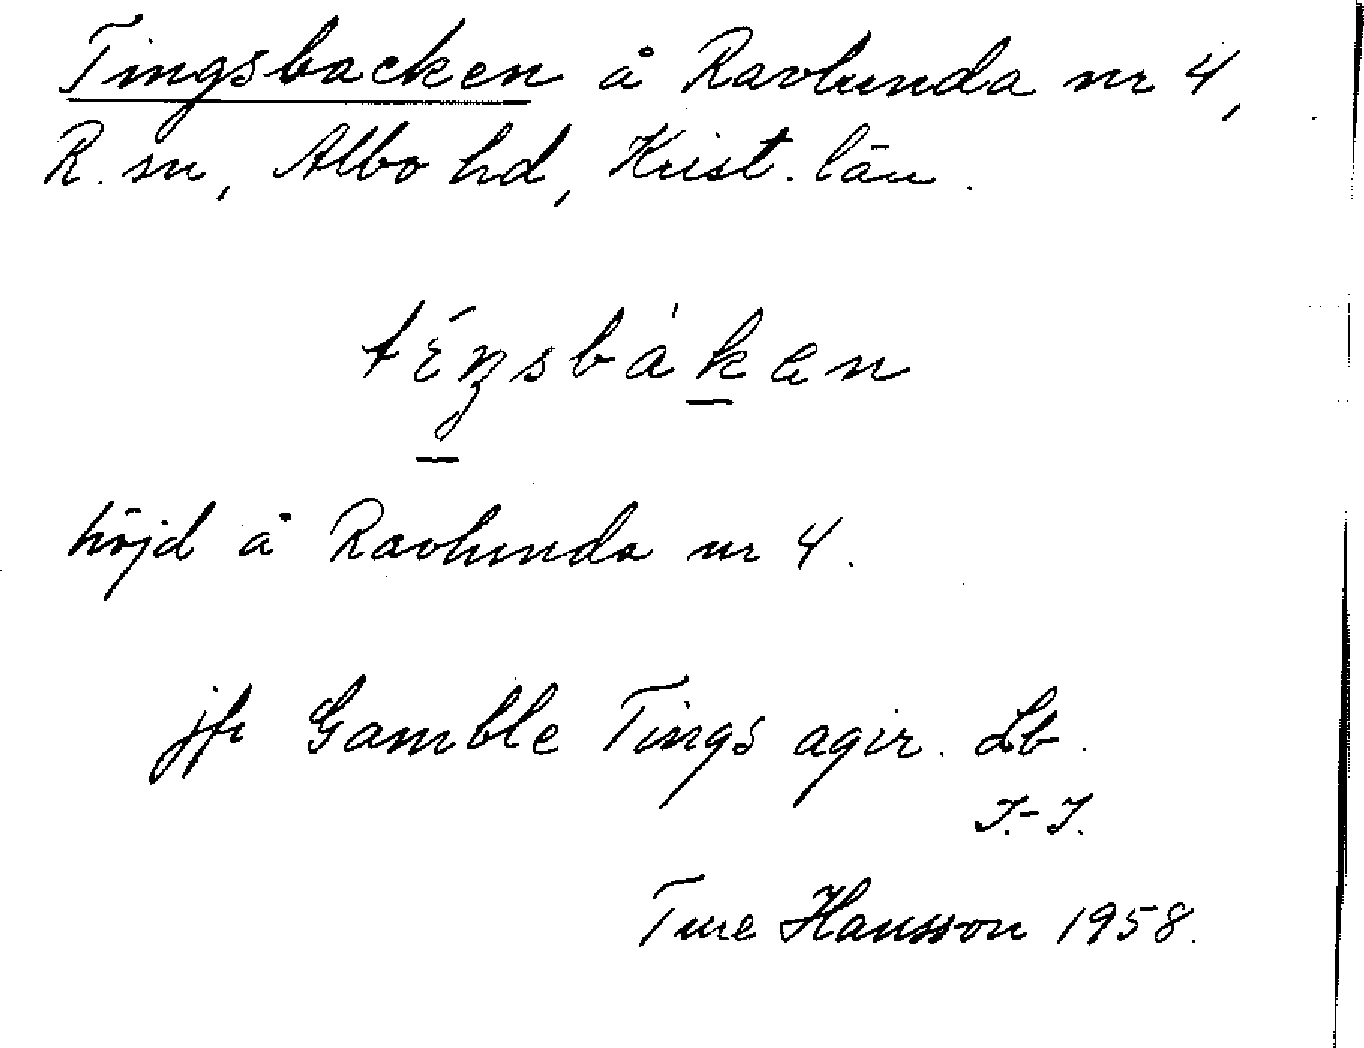 Tingsbacken å Ravlunda nr 4,
R. sn, Albo hd, Krist. län.
téŋsbákən
höjd å Ravlunda nr 4.
jfr Gamble Tings agir. Lb.
I.-J.
Ture Hansson 1958.